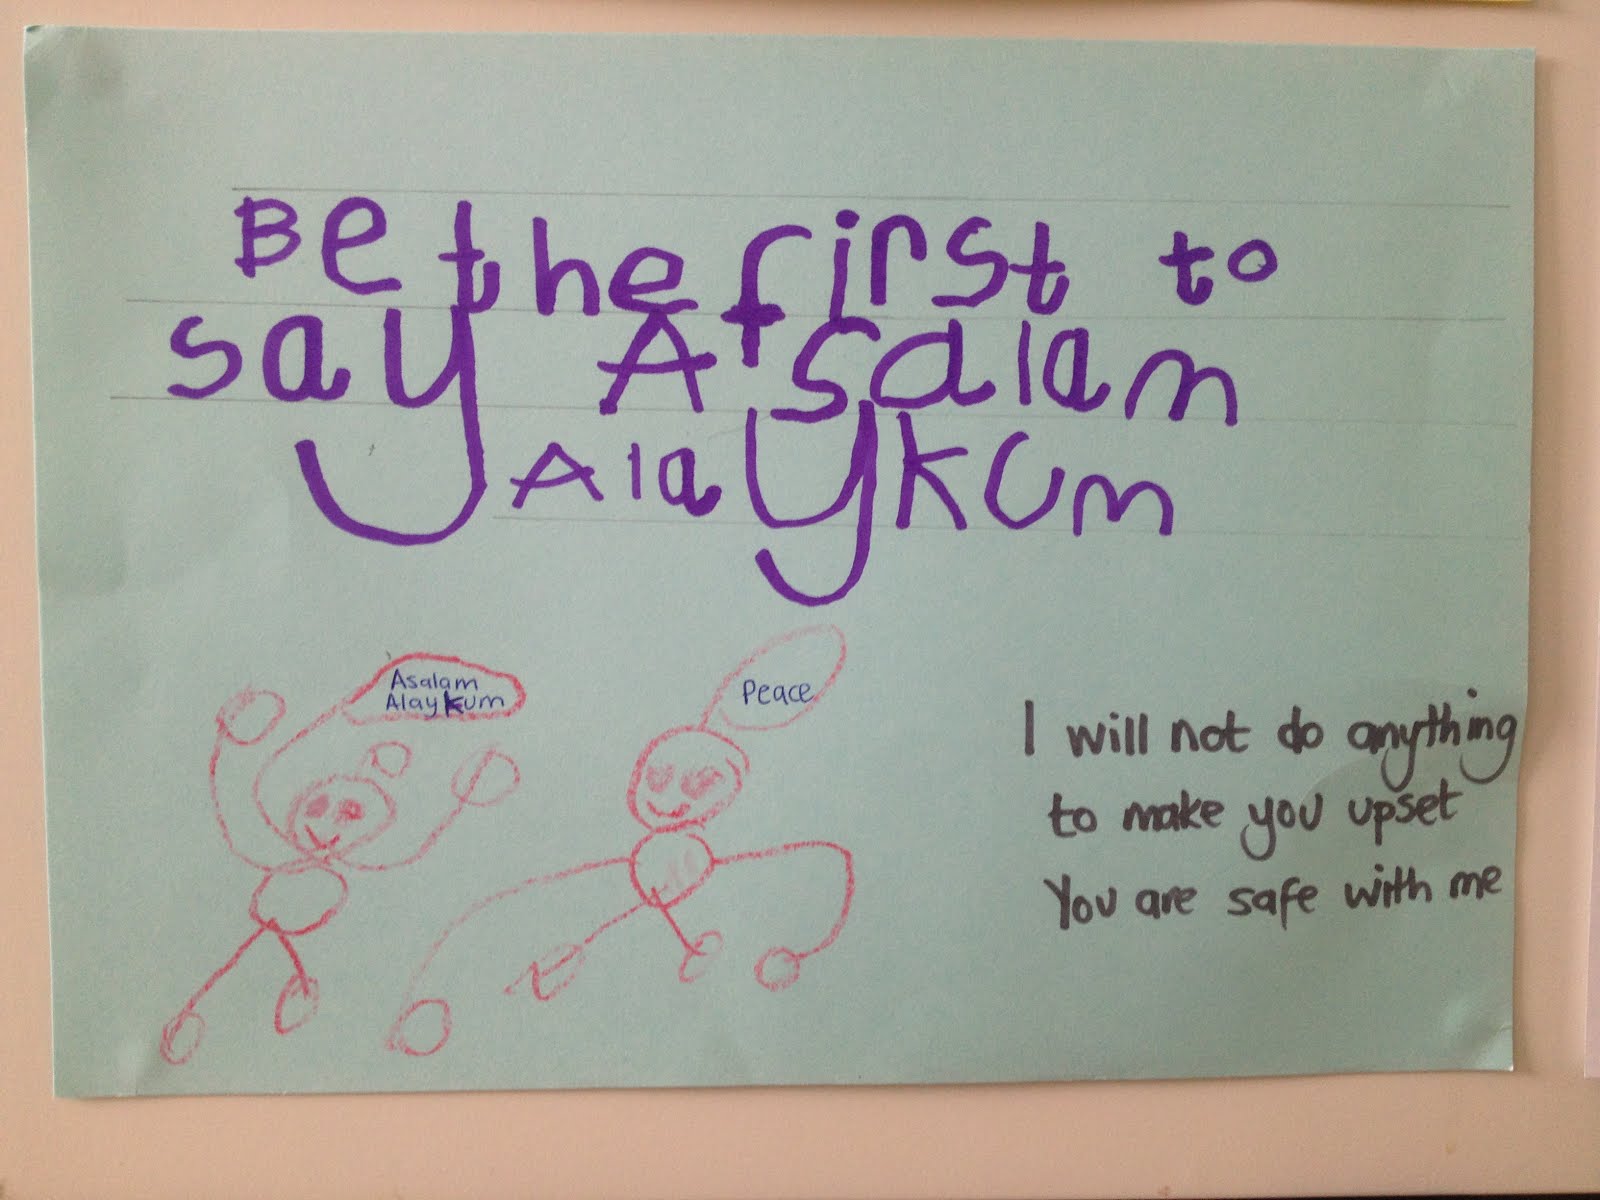 Be the first to
say Asalam
Alaykum
Asalam
Alaykum
Peace
I will not do anything
to make you upset
You are safe with me